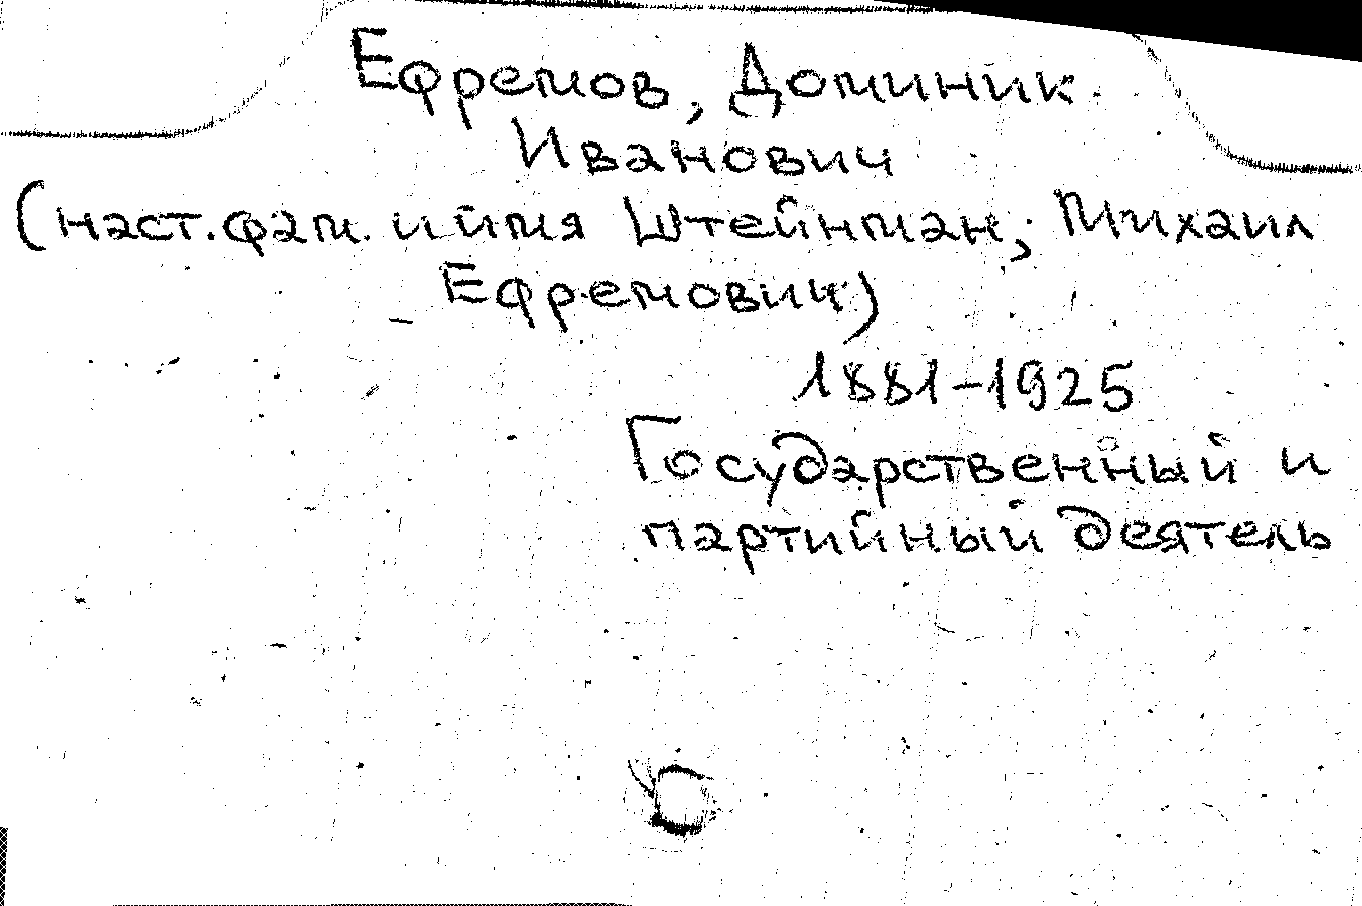 Ефремов, Доминик
Иванович
(наст. фам. и имя Штейнман, Михаил
Ефремович)
1881-1925
Государственный и
партийный деятель